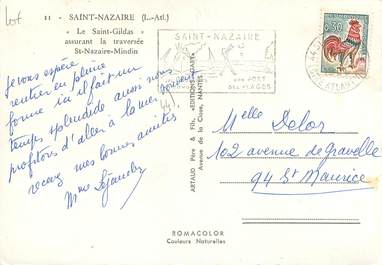 Lot
11 - SAINT-NAZAIRE (L.-Atl.)
« Le Saint-Gildas »
assurant la traversée
St-Nazaire-Mindin
Je vous espère
rentrer en pleine
forme ici il fait un
temps splendide aussi nous
profitons d'aller à la mer souvent
recevez mes bonnes amitiés
Mme
SAINT-NAZAIRE
SON PORT
SES PLAGES
0,30
44
ARTAUD Père & Fils, «EDITIONS GABY»
Avenue de la Close, NANTES
Melle Delor
102 avenue de gravelle
94 St Maurice
ROMACOLOR
Couleurs Naturelles